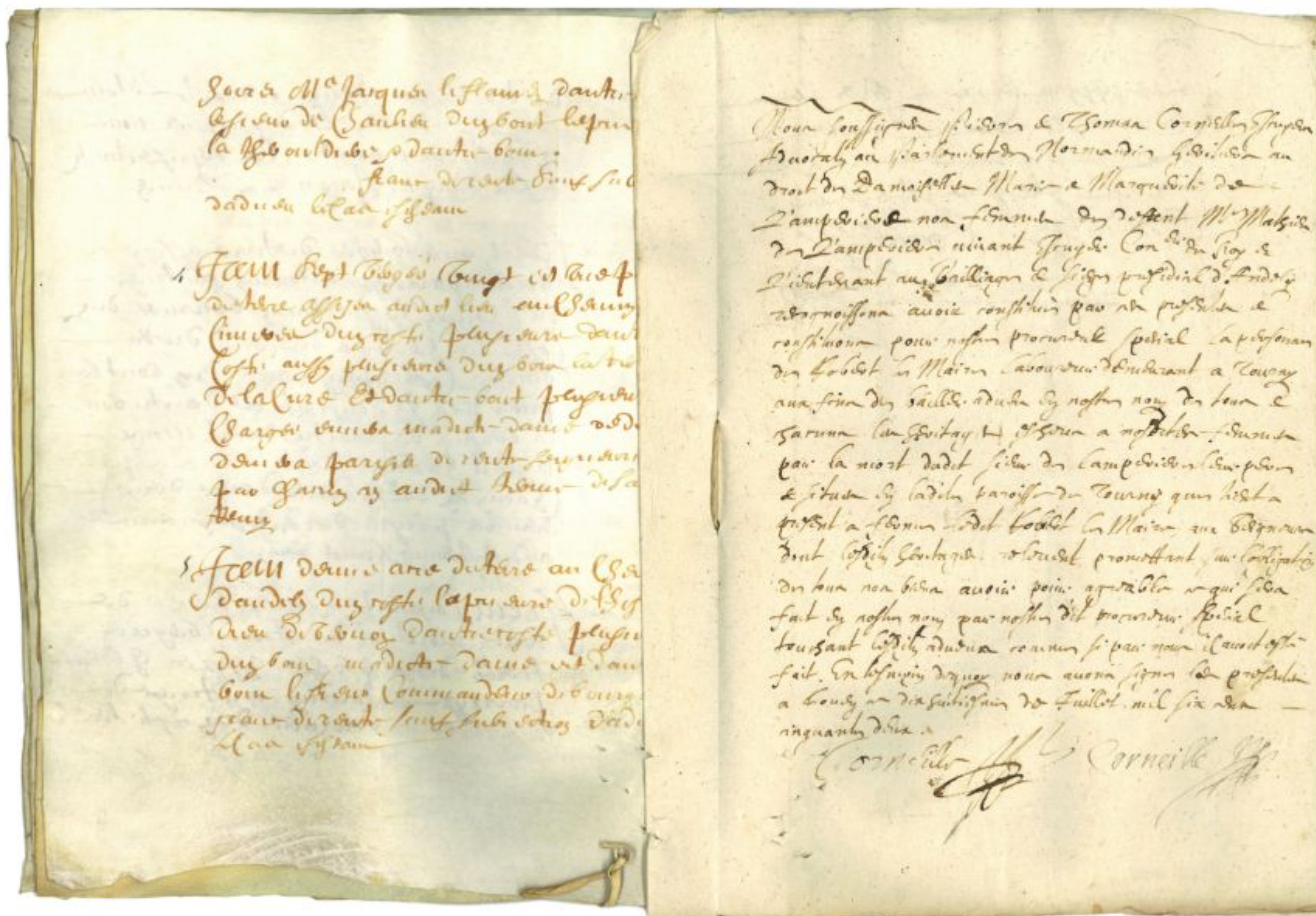 hoirs Mᵉ Jacques le flamen dautre
le sieur de Chaulieu dung bout le
la dautre bout
franc de rente sauf sub
dadveu le cas escheant
4 Item sept vergés vingt et une p
de terre assises audict lieu au Chemin
dung costé plusieurs dautre
Costé aussy plusieurs dung bout la
de la Cure Et dautre bout plusieurs
Chargés envers madicte dame de d
deniers parisis de rente seigneur
par Chacun an audict terme de Sᵗ
Remy
5 Item demie acre de terre au Che
dandely dung costé le prieuré de lhos
dieu de Vernon dautre costé plusie
dung bout madicte dame et dau
bout le sieur Commandeur de bourg
franc de rente sauf subiection dad
le cas escheant
Nous soubsignez Pierre & Thomas Corneille Escuyers
Advocatz au Parlement de Normandie heritiers au
droit de Damoiselles Marie & Marguerite de
Lamperiere noz femmes de deffunt Mᵉ Mathieu
de Lamperiere vivant Escuyer Conᵉʳ du Roy &
Lieutenant au Bailliage & siege presidial d'Andely
recognoissons avoir constitué par ces presentes &
constituons pour nostre procureur special la personne
de Robert le Maire laboureur demeurant a Tourny
aux fins de bailler adveu en nostre nom de tous &
chacuns les heritages escheus a nosdites femmes
par la mort dudit sieur de Lamperiere leur pere
& situez en ladite paroisse de Tourny que tient a
present a ferme ledit Robert le Maire aux seigneurs
dont lesdits heritages relevent promettant sur l'obligation
de tous noz biens avoir pour agreable ce qui sera
fait en nostre nom par nostre dit procureur special
touchant lesdits adveus comme si par nous il avoit esté
fait. En tesmoin dequoy nous avons signé ces presentes
a Rouen ce dixhuitiesme de Juillet mil six cens
cinquante deux.
Corneille Corneille